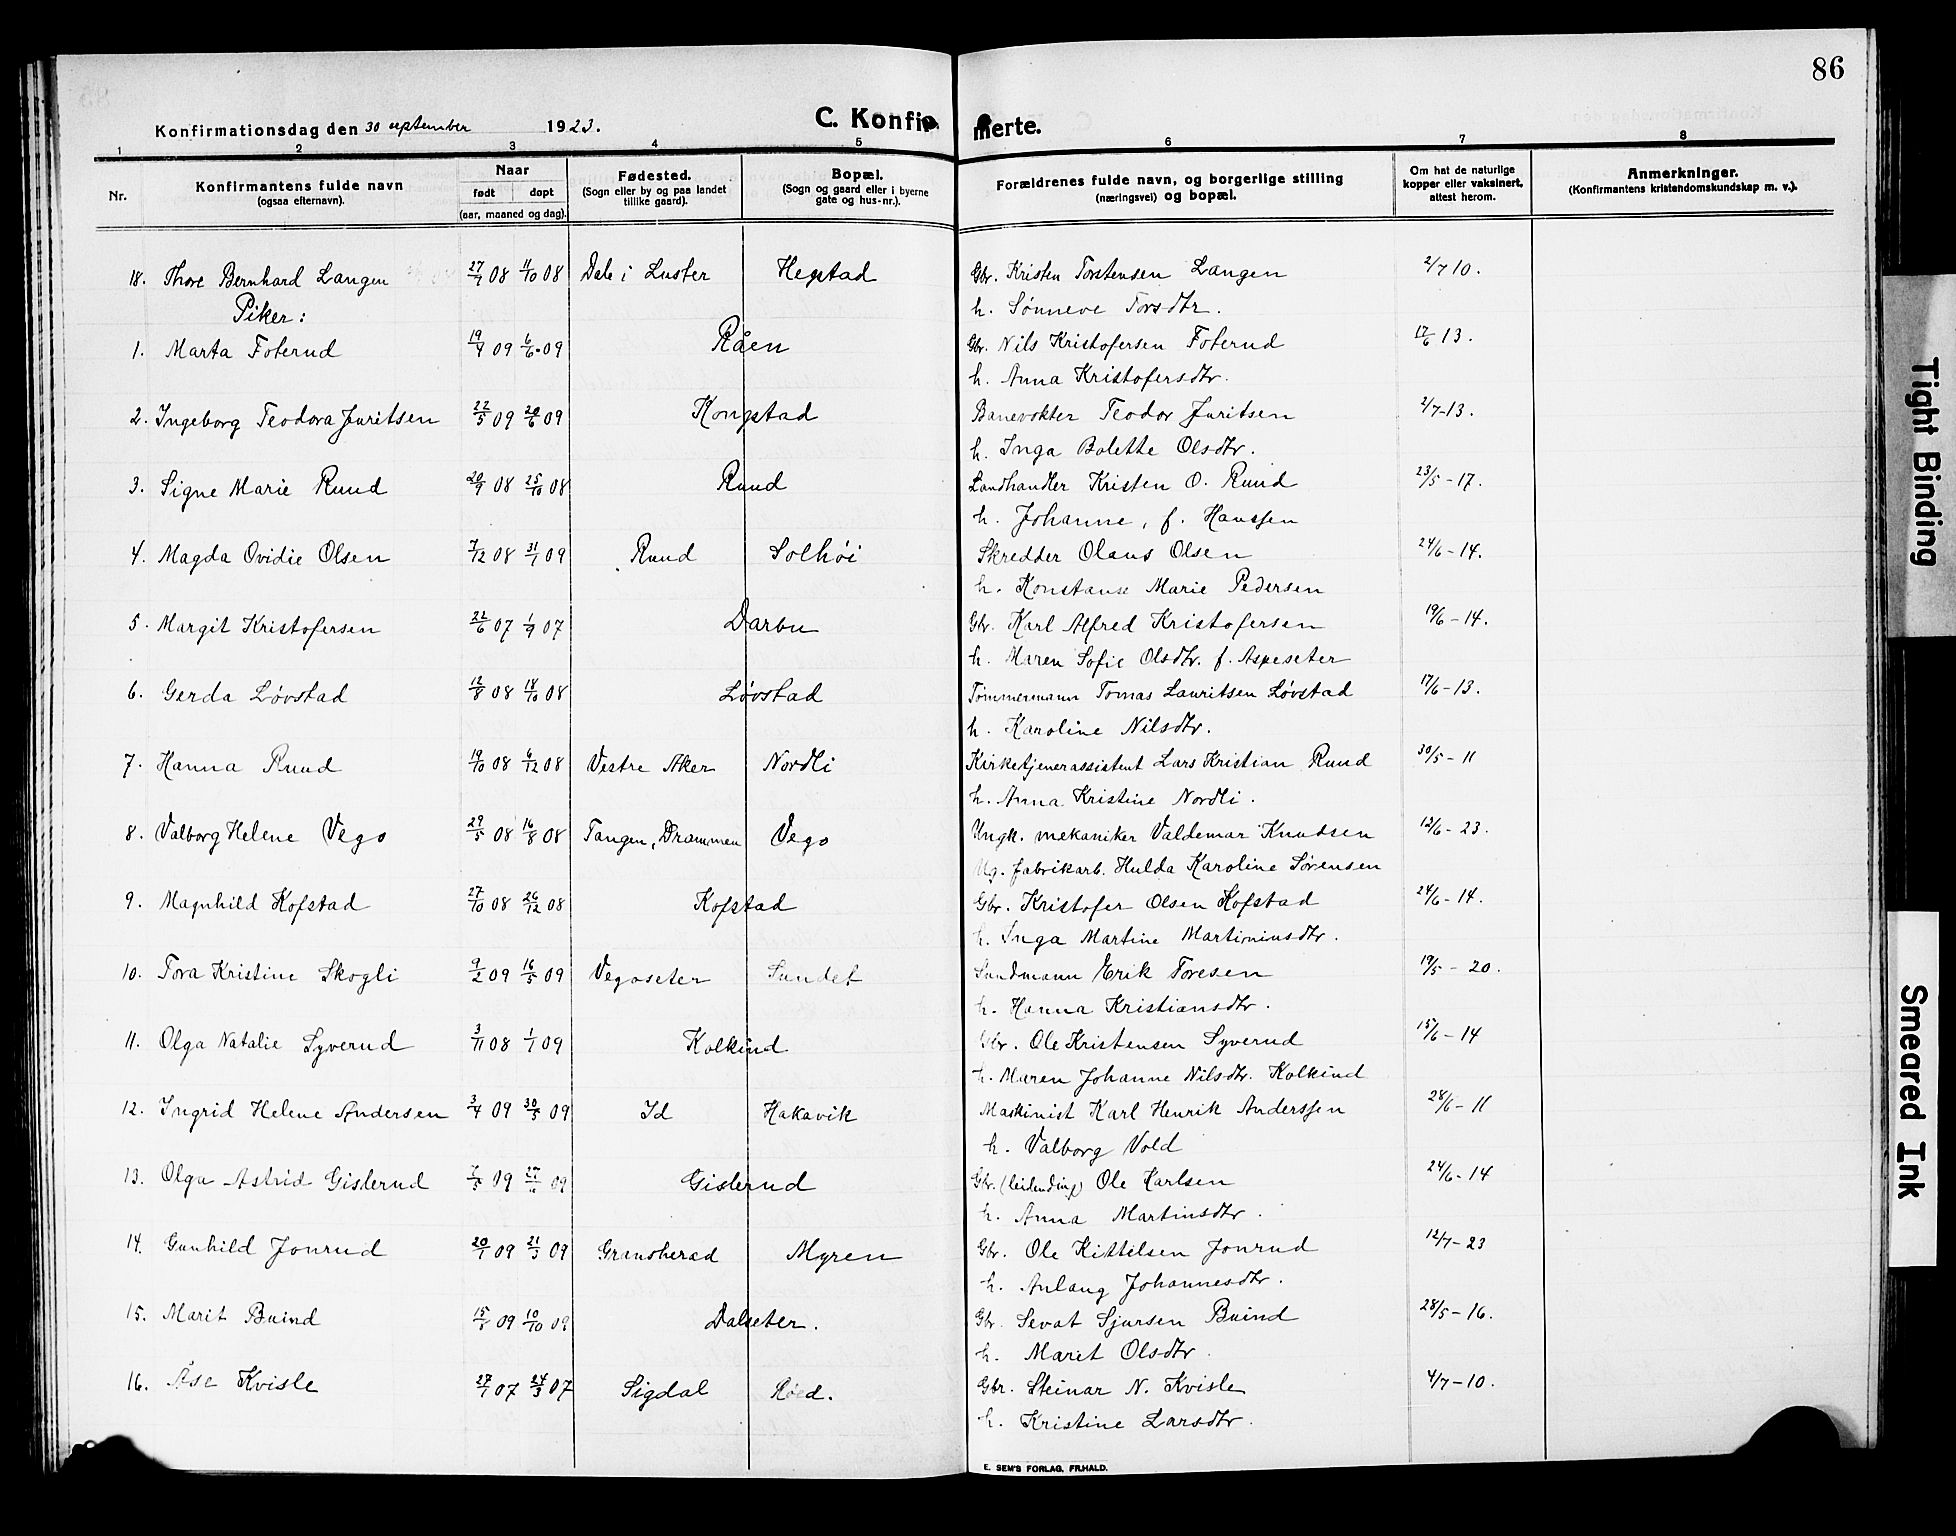 86
Konfirmationsdag den 30 september 1923.
C. Konfirmerte.
1 2 3 4 5 6 7 8
Nr.
Konfirmantens fulde navn
(ogsaa efternavn).
Naar
født døpt
(aar, maaned og dag).
Fødested.
(Sogn eller by og paa landet
tillike gaard).
Bopæl.
(Sogn og gaard eller i byerne
gate og hus-nr.).
Forældrenes fulde navn, og borgerlige stilling
(næringsvei) og bopæl.
Om hat de naturlige
kopper eller vaksinert,
attest herom.
Anmerkninger.
(Konfirmantens kristendomskundskap m. v.).
18. Thore Bernhard Langen 27/7 08 11/10 08 Dale i Luster Hegstad Gbr. Kristen Torstensen Langen 2/7 10.
h. Sønneve Torsdtr.
Piker:
1. Marta Foterud 19/4 09 6/6-09 Råen Gbr. Nils Kristofersen Foterud 17/6 13.
h. Anna Kristofersdtr.
2. Ingeborg Teodora Juritsen 22/5 09 20/6 09 Kongstad Banevokter Teodor Juritsen 2/7-13.
h. Inga Bolette Olsdtr.
3. Signe Marie Ruud 20/9 08 25/10 08 Ruud Landhandler Kristen O. Ruud 23/5-17.
h. Johanne, f. Hanssen
4. Magda Ovidie Olsen 7/12 08 31/1 09 Ruud Solhøi Skredder Olaus Olsen 24/6-14.
h. Konstanse Marie Pedersen
5. Margit Kristofersen 22/6 07 1/9 07 Darbu Gbr. Karl Alfred Kristofersen 19/6-14.
h. Maren Sofie Olsdtr. f. Aspeseter
6. Gerda Løvstad 12/9 08 18/10 08 Løvstad Tømmermann Tomas Lauritsen Løvstad 17/6-13.
h. Karoline Nilsdtr.
7. Hanna Ruud 19/10 08 6/12 08 Vestre Aker Nordli Kirketjenerassistent Lars Kristian Ruud 30/5-11
h. Anna Kristine Nordli.
8. Valborg Helene Vego 29/5 08 16/8 08 Tangen, Drammen Vego Ungk. mekaniker Valdemar Knudsen 13/6-23.
Ug. fabrikarb. Hulda Karoline Sørensen
9. Magnhild Kofstad 27/10 08 26/12 08 Kofstad Gbr. Kristofer Olsen Kofstad 24/6-14.
h. Inga Martine Martiniusdtr.
10. Tora Kristine Skogli 9/2 09 16/5 09 Vegoseter Sundet Sundmann Erik Toresen 19/5-20.
h. Hanna Kristiansdtr.
11. Olga Natalie Syverud 3/11 08 1/1 09 Kolkind Gbr. Ole Kristensen Syverud 15/6-14
h. Maren Johanne Nilsdtr. Kolkind
12. Ingrid Helene Andersen 3/4 09 30/5 09 Id Hakavik Maskinist Karl Henrik Anderssen 28/6-11
h. Valborg Vold
13. Olga Astrid Gislerud 09 09 Gislerud Gbr. (leilending) Ole Karlsen 24/6-14
h. Anna Martinsdtr.
14. Gunhild Jonrud 20/1 09 21/3 09 Gransherad Myren Gbr. Ole Kittilsen Jonrud 12/7-23
h. Anlaug Johannesdtr.
15. Marit Buind 09 10/10 09 Dalseter. Gbr. Sevat Sjursen Buind 28/5-16.
h. Maret Olsdtr.
16. Åse Kvisle 27/1 07 24/3 07 Sigdal Røed. Gbr. Steinar N. Kvisle 4/7-10.
h. Kristine Larsdtr.
E. SEM'S FORLAG, FR.HALD.
Tight Binding
Smeared Ink